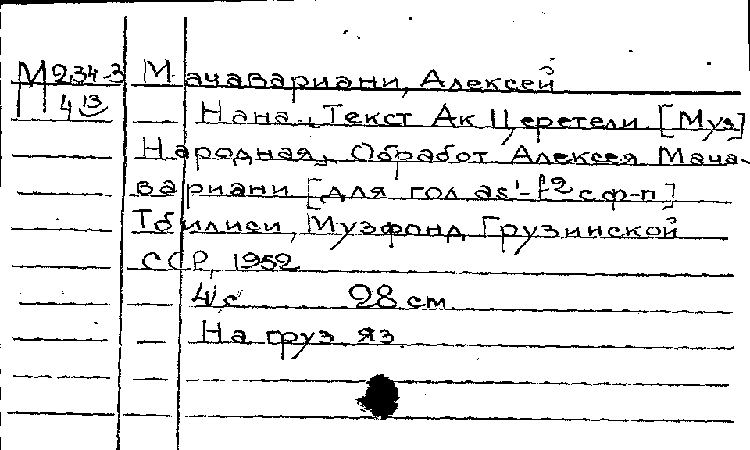 М 234-3
4 13
Мачавариани, Алексей
Нана. Текст Ак Церетели [Муз]
Народная, Обработ Алексея Мача-
вариани [для гол as'-f2 с ф-п]
Тбилиси, Музфонд Грузинской
ССР, 1952
4 с 28 см
На груз яз.